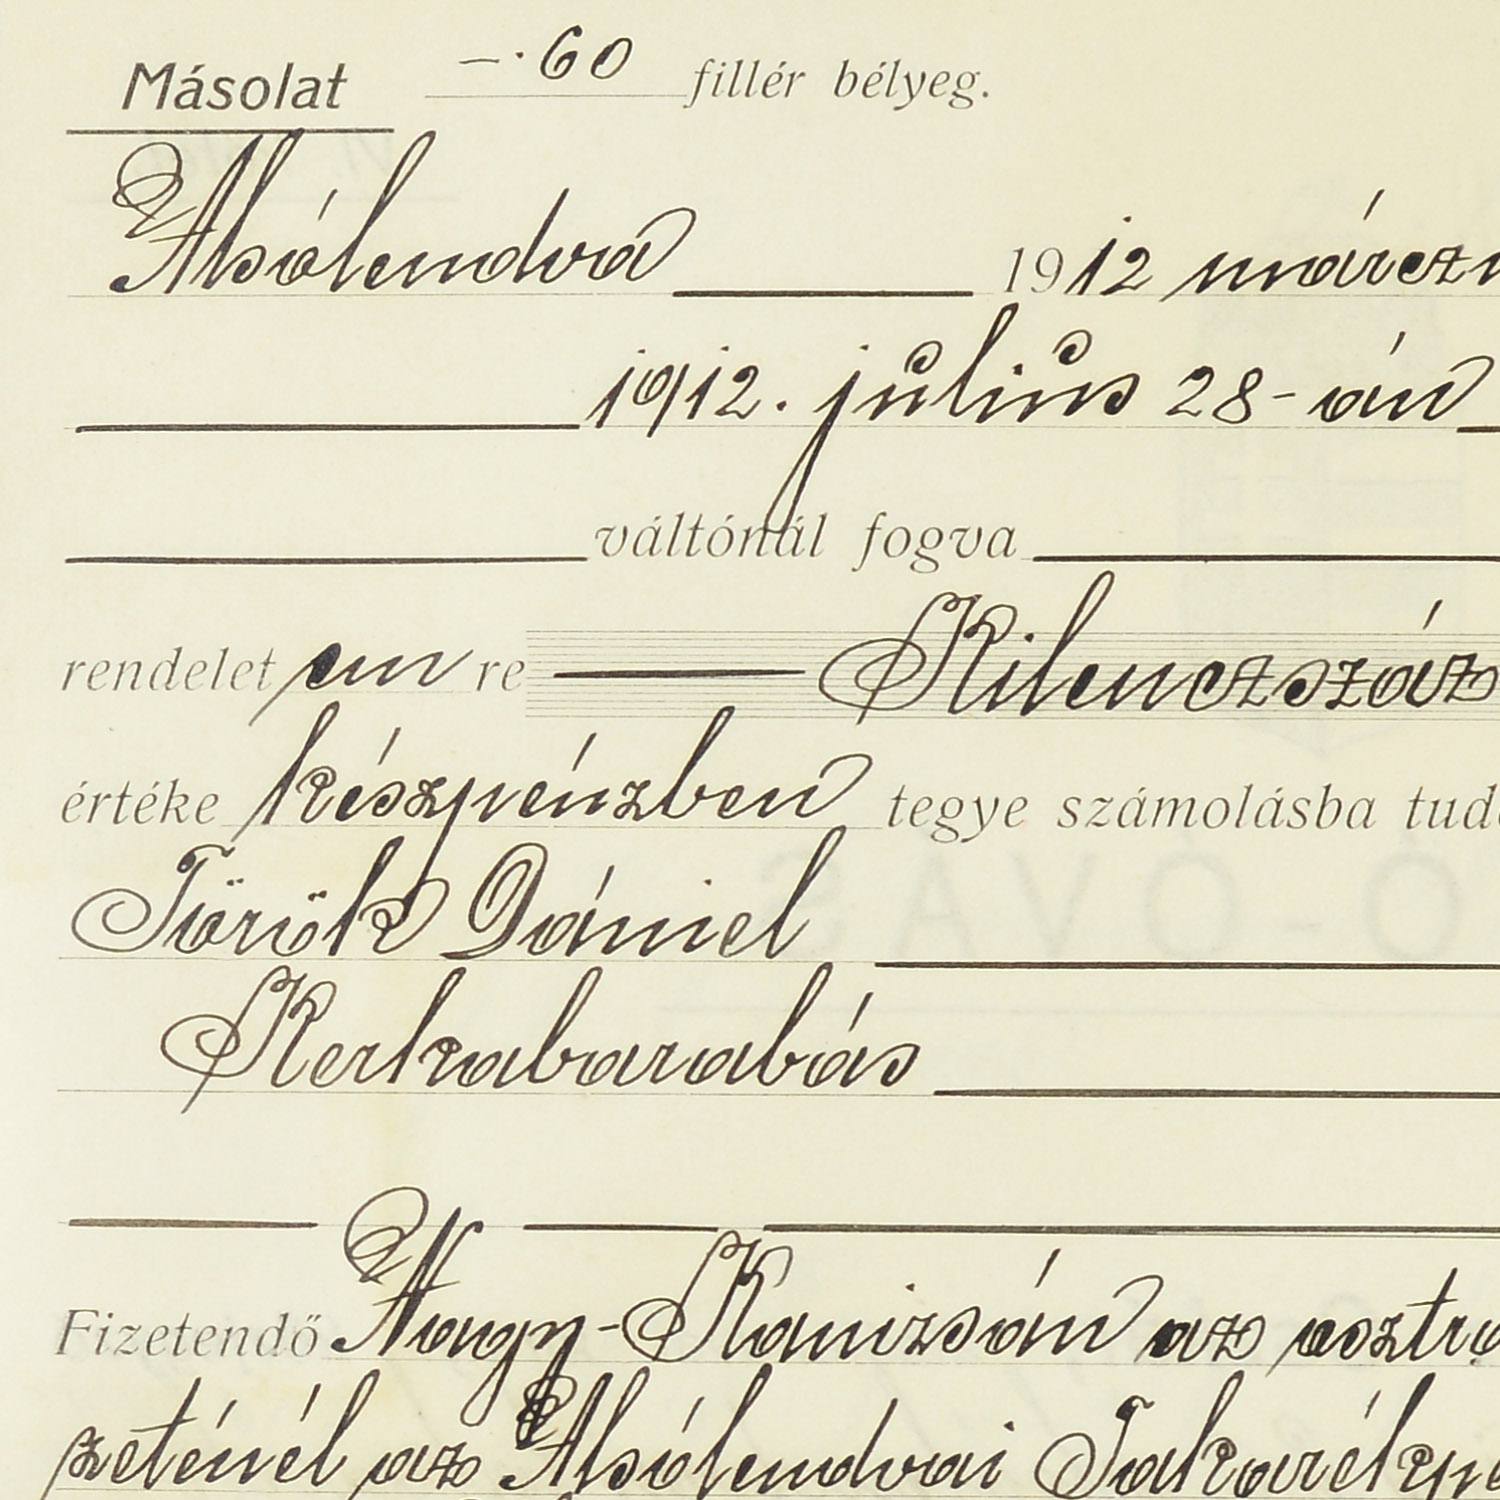 Másolat —·60 fillér bélyeg.
Alsólendva 1912 márczi
1912. július 28-án
váltónál fogva
rendelet em re Kilenczszáz
értéke készpénzben tegye számolásba tud
Török Dániel
Kerkabarabás
Fizetendő Nagy-Kanizsán az osztr
zeténél az Alsólendvai Takarékpé